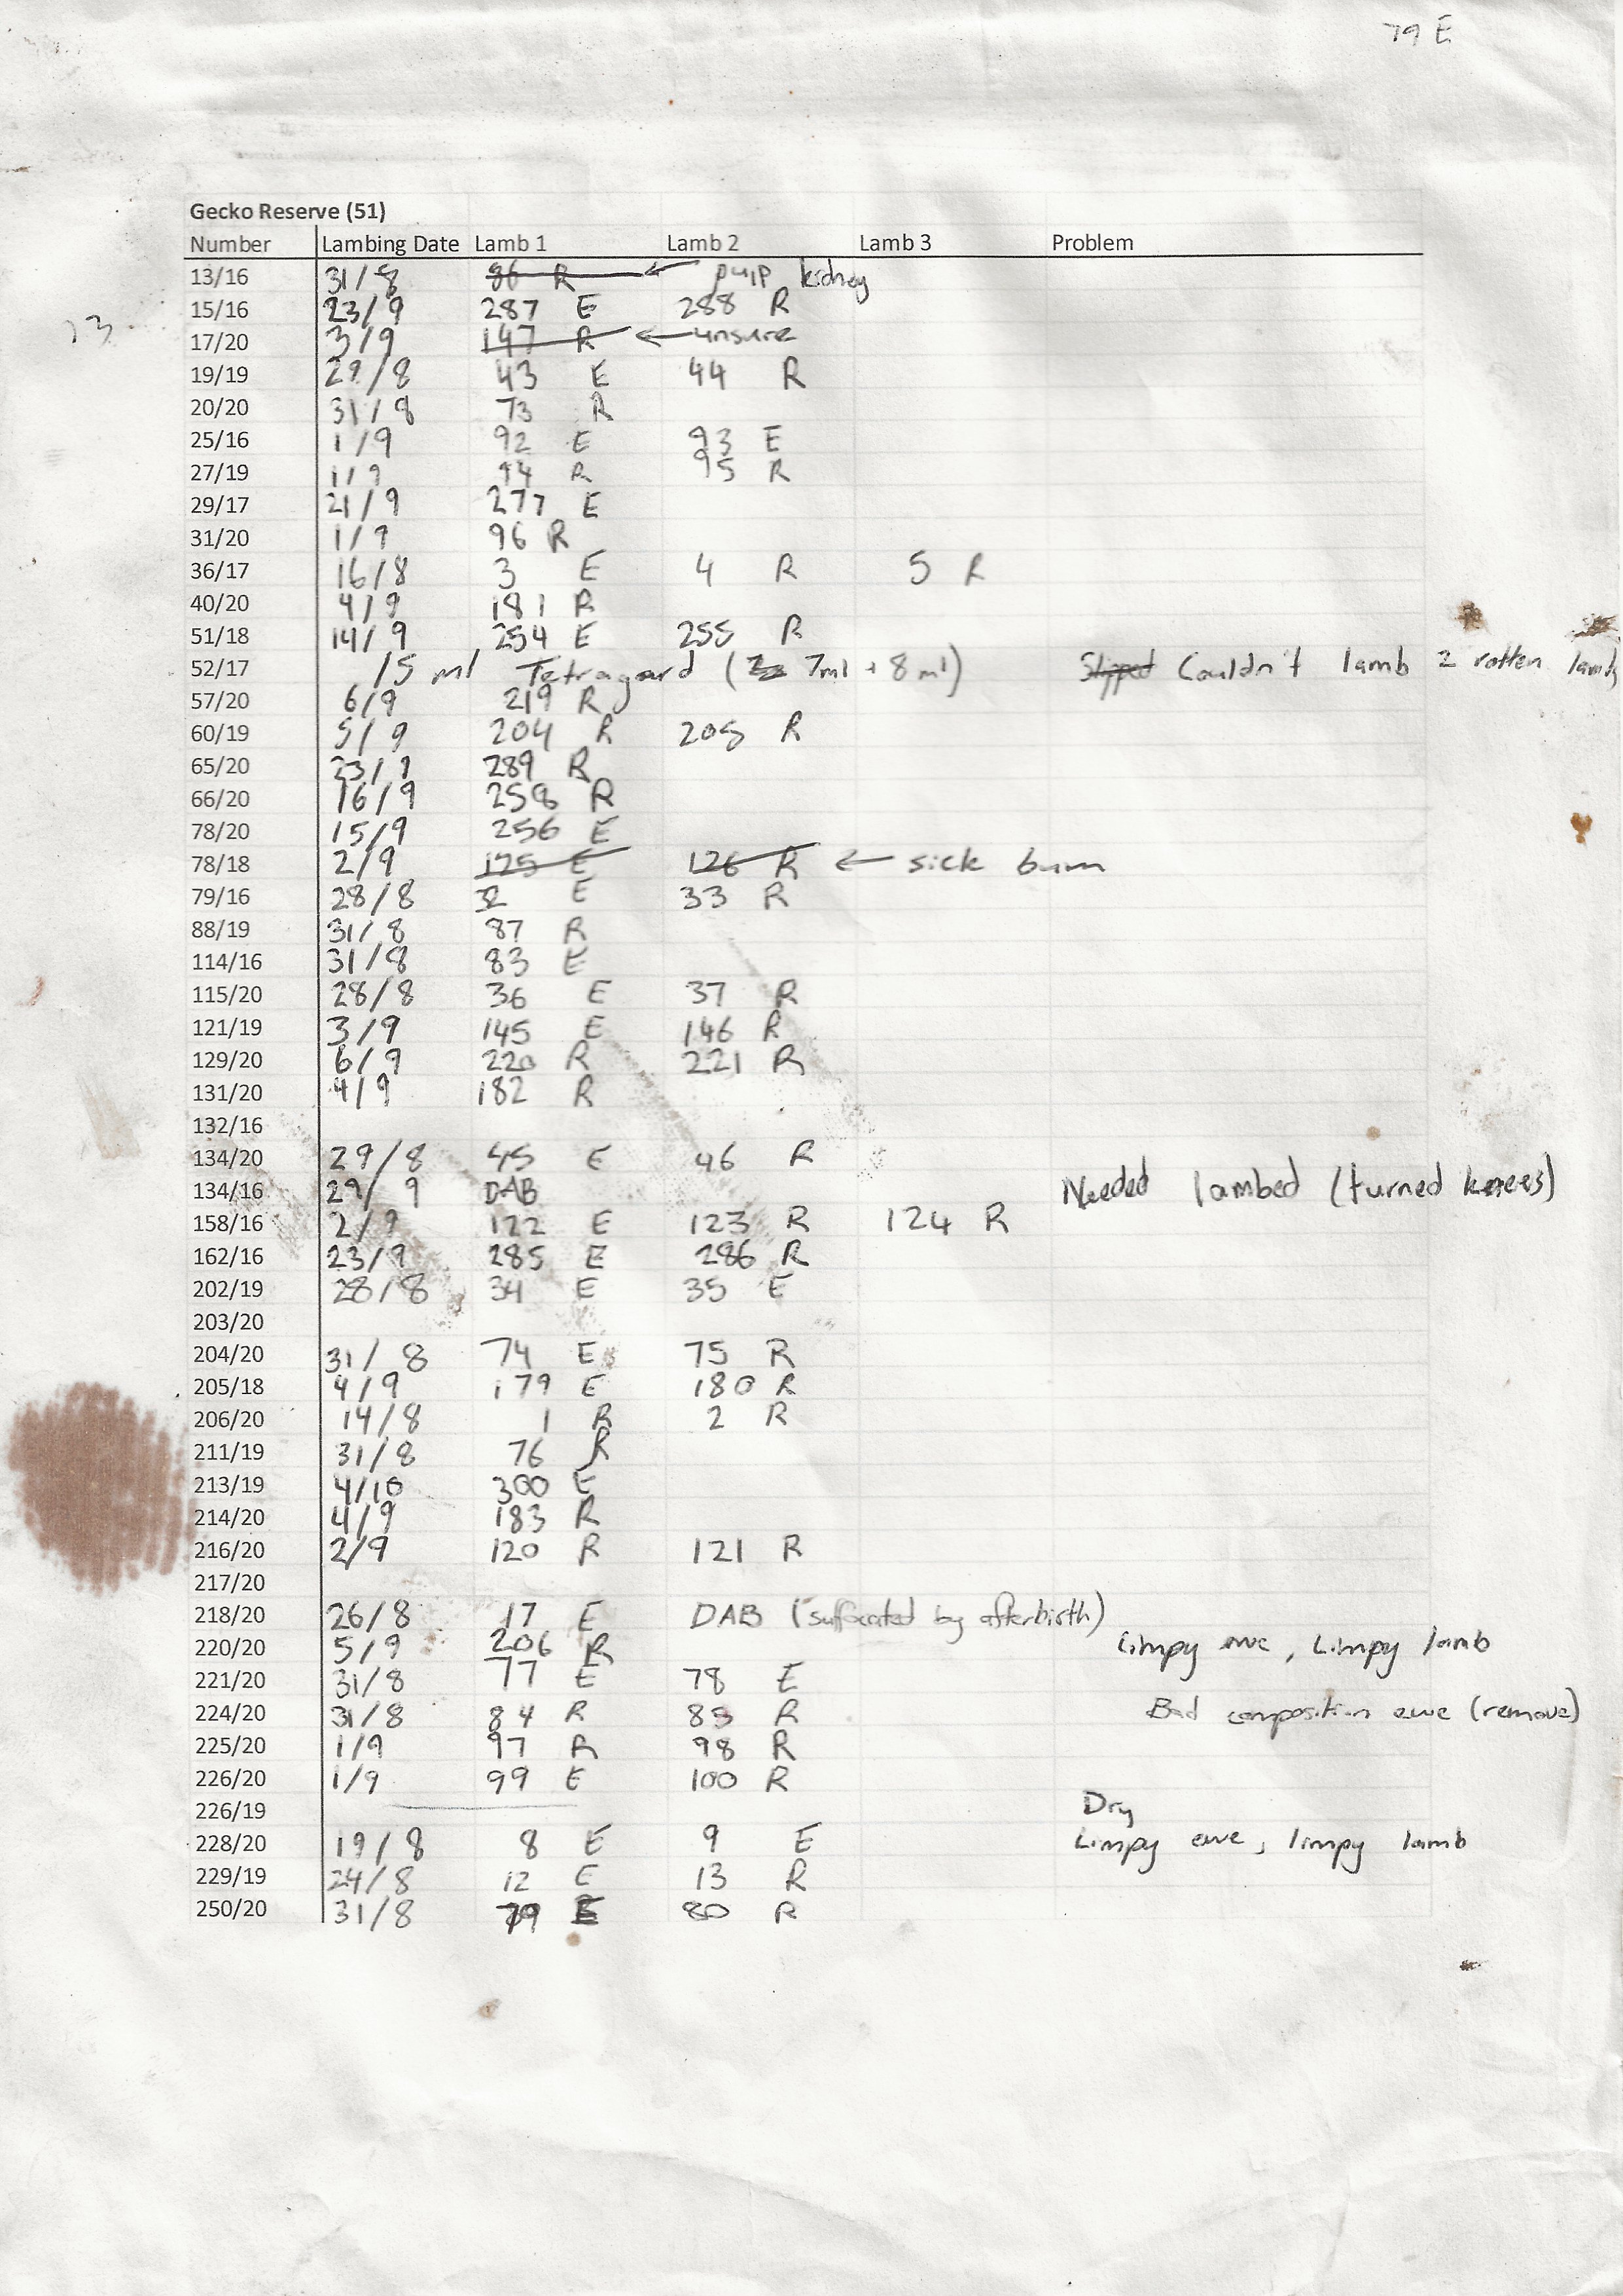 79 E
Gecko Reserve (51)
Number Lambing Date Lamb 1 Lamb 2 Lamb 3 Problem
13/16 31/8 86 R ← pulp kidney
15/16 23/9 287 E 288 R
13
17/20 3/9 147 R ← unsure
19/19 29/8 43 E 44 R
20/20 31/8 73 R
25/16 1/9 92 E 93 E
27/19 1/9 94 R 95 R
29/17 21/9 277 E
31/20 1/9 96 R
36/17 16/8 3 E 4 R 5 R
40/20 4/9 181 R
51/18 14/9 254 E 255 R
52/17 15 ml Tetragard ( 7ml + 8ml) Slipped Couldn't lamb 2 rotten lambs
57/20 6/9 219 R
60/19 5/9 204 R 205 R
65/20 23/9 289 R
66/20 16/9 258 R
78/20 15/9 256 E
78/18 2/9 125 E 126 R ← sick bum
79/16 28/8 32 E 33 R
88/19 31/8 87 R
114/16 31/8 83 E
115/20 28/8 36 E 37 R
121/19 3/9 145 E 146 R
129/20 6/9 220 R 221 R
131/20 4/9 182 R
132/16
134/20 29/8 45 E 46 R
134/16 29/9 DAB Needed lambed (turned knees)
158/16 2/9 122 E 123 R 124 R
162/16 23/9 285 E 286 R
202/19 28/8 34 E 35 E
203/20
204/20 31/8 74 E 75 R
205/18 4/9 179 E 180 R
206/20 14/8 1 R 2 R
211/19 31/8 76 R
213/19 4/10 300 E
214/20 4/9 183 R
216/20 2/9 120 R 121 R
217/20
218/20 26/8 17 E DAB (suffocated by afterbirth)
220/20 5/9 206 R Limpy ewe, Limpy lamb
221/20 31/8 77 E 78 E
224/20 31/8 84 R 85 R Bad composition ewe (remove)
225/20 1/9 97 R 98 R
226/20 1/9 99 E 100 R
226/19 Dry
228/20 19/8 8 E 9 E Limpy ewe, limpy lamb
229/19 24/8 12 E 13 R
250/20 31/8 79 E 80 R